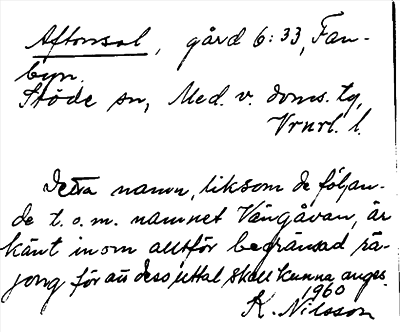 Aftonsol, gård 6:33, Fan-
byn.
Stöde sn, Med. v. doms. tg,
Vrnrl. l.
Detta namn, liksom de följan-
de t. o. m. namnet Vängåvan, är
känt inom alltför begränsad ra-
jong för att dess uttal skall kunna anges.
1960
K. Nilsson